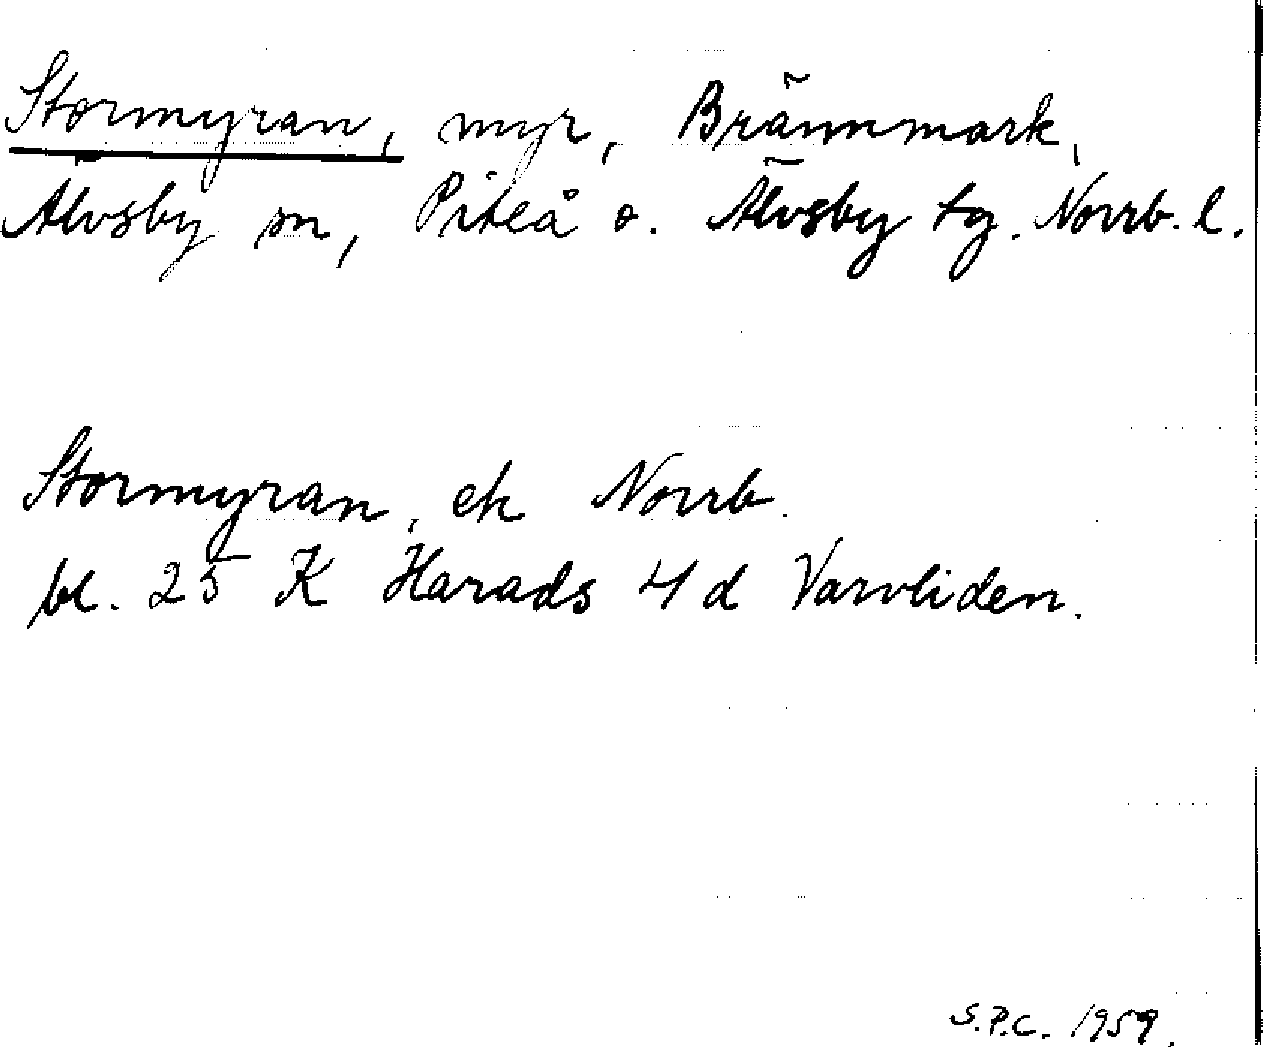 Stormyran, myr, Brännmark,
Älvsby sn, Piteå o. Älvsby tg. Norrb. l.
Stormyran, ek Norrb.
bl. 25 K Harads 4 d Varvliden.
S.P.C. 1959.